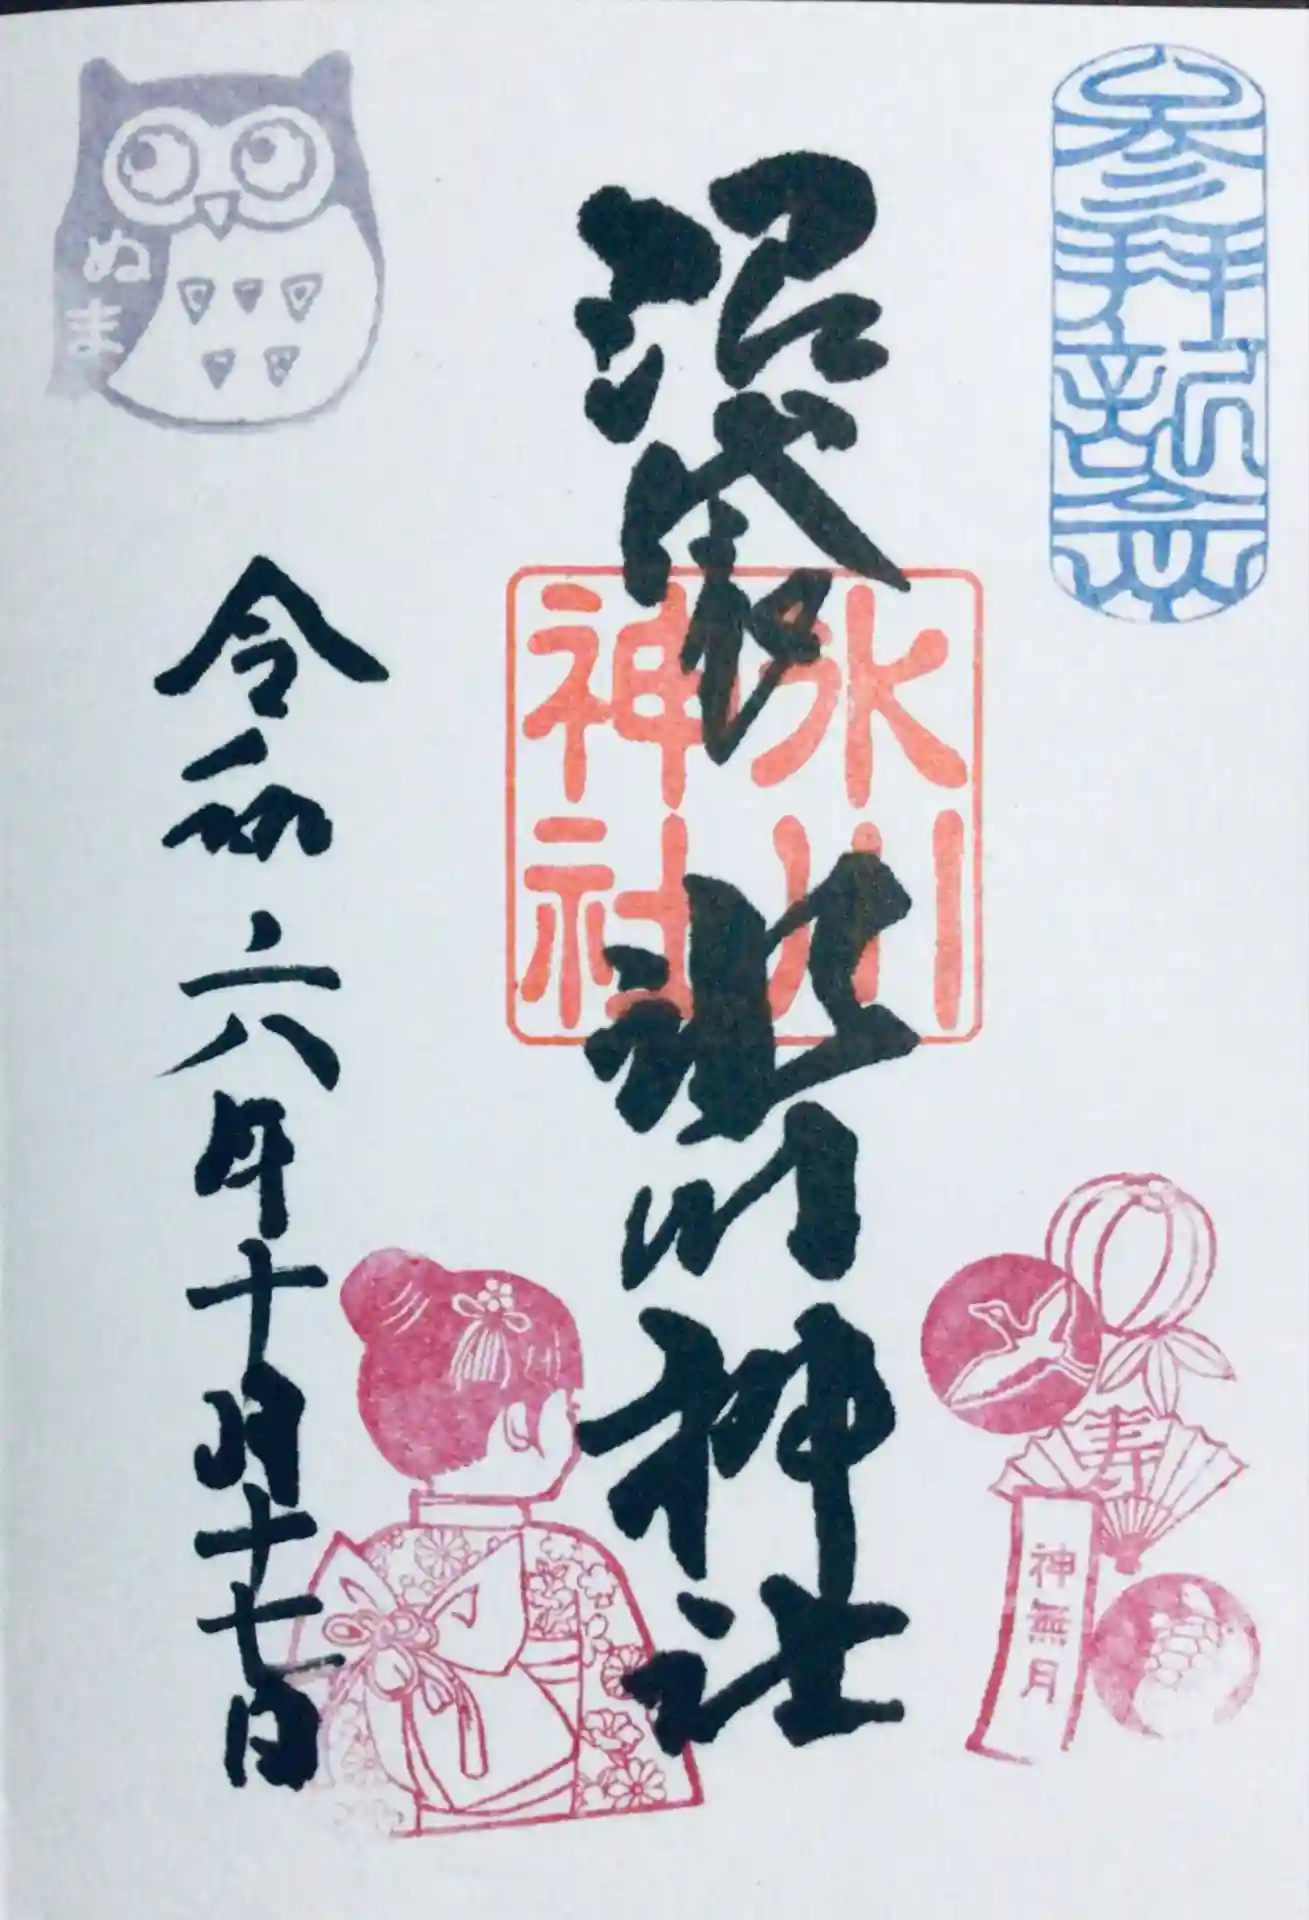 参拝記念
沼袋
氷川神社
氷川
神社
寿
神無月
ぬま
令和六年十月十七日